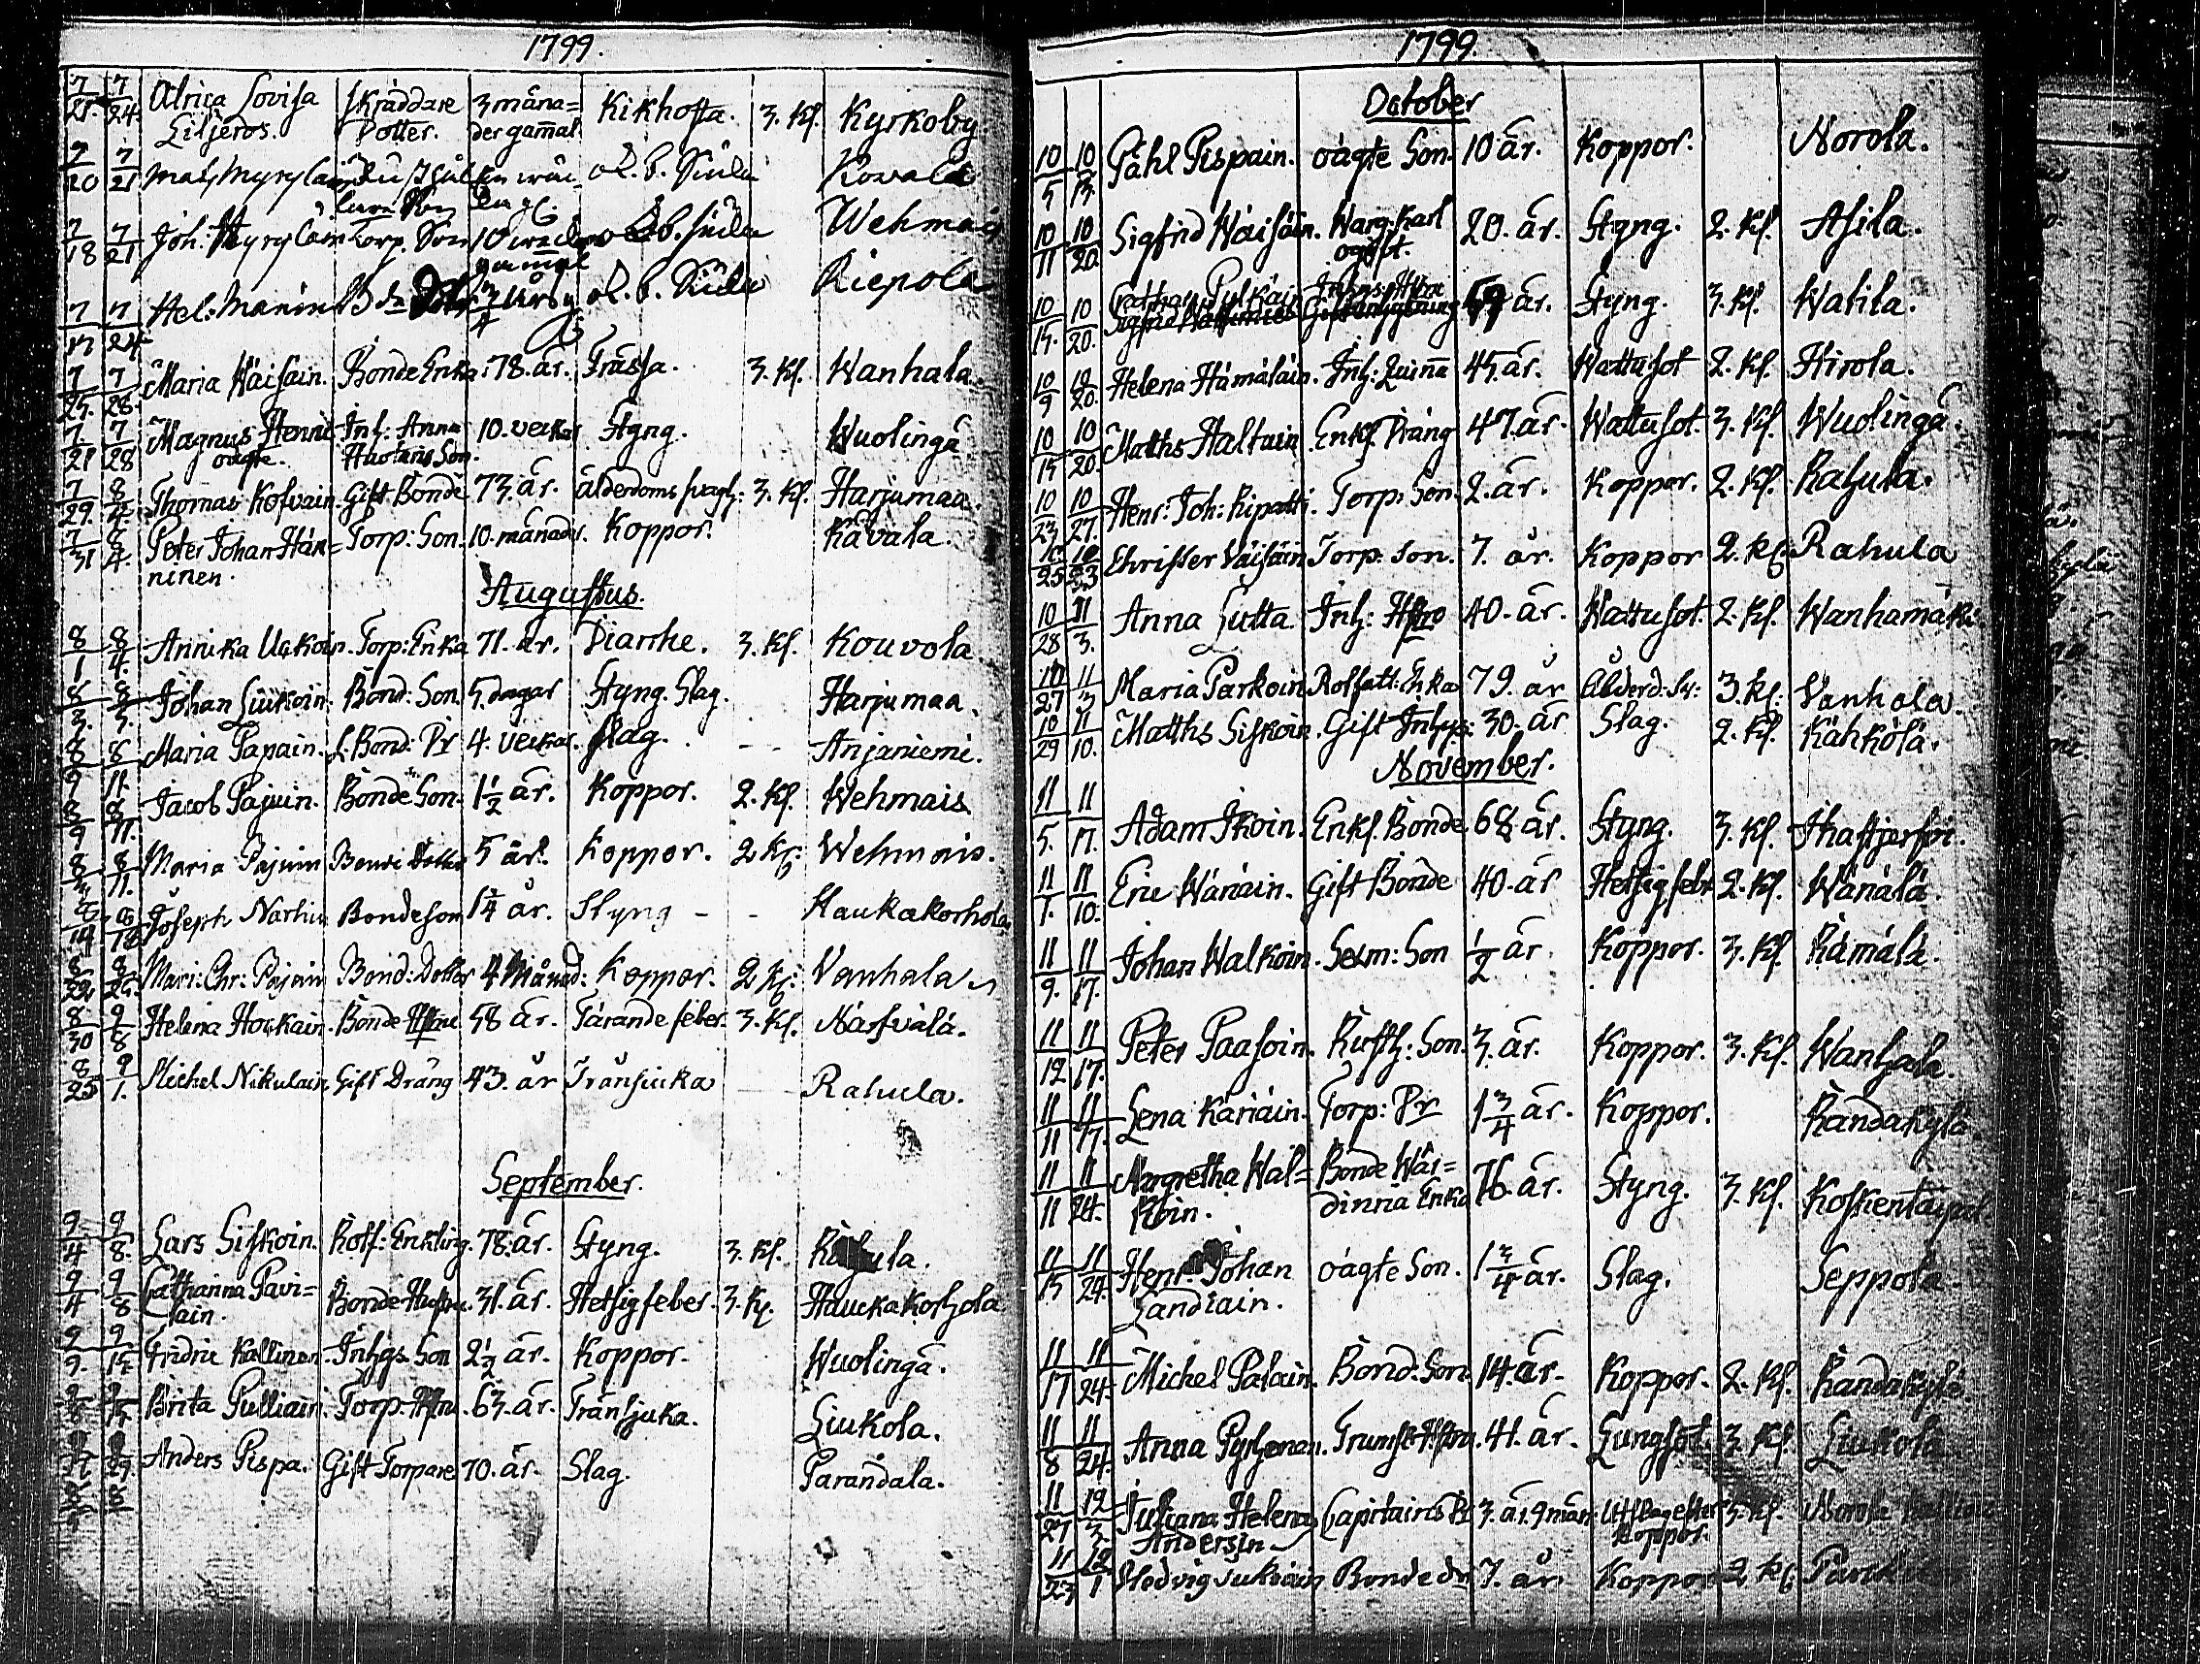 1799.
7/21. 7/24. Ulrica Lovisa Skräddare 3 måna= Kikhosta. 3. Kl. Kyrkoby.
Liljeros. Dotter. der gam̄al.
7/20 7/21 Math Myryläin ob. b. Siuka Kovala
7/18 7/21 Joh. Myryläin Torp. Son 10 weckor ob. b. siuka Wehmais
gammal
7/17 7/24 Hel: Manin ob. b. Siuka Riepola
7/25. 7/28. Maria Wäisäin. Bonde Enka. 78. år. Trässa. 3. Kl. Wanhala.
7/21 7/28 Magnus Henric Inh: Anna 10. veckor Styng. Wuolingå.
oägte. Huotaris Son.
7/29. 8/4. Thomas Kofvain. Gift Bonde 73. år. ålderdoms svagh: 3. Kl. Harjumaa.
7/31 8/4. Peter Johan Hän= Torp: Son. 10. månader. Koppor. Kåvala.
ninen.
Augustus.
8/1 8/4. Annika Uckoin. Torp: Enka 71. år. Diarrhe. 3. Kl. Kouvola
8/3. 8/5. Johan Liukoin. Bond: Son. 5. dagar Styng. Slag. Harjumaa.
8/9 8/11. Maria Papain. L. Bond: Dr 4. veckor. Slag. - - Anjaniemi.
8/9 8/11. Jacob Pajuin. Bonde Son. 1 1/2 år. Koppor. 2. Kl. Wehmais
8/11. Maria Pajuin Bonde Dotter 5 år. Koppor. 2 Kl: Wehmais.
8/14 8/18 Joseph Narhin Bondeson 1/4 år. Styng - - Haukakorhola
8/22 8/25. Mari: Chr: Pajuin Bond: Dotter 4 Månad: Koppor. 2 Kl: Vanhala
8/30 9/8 Helena Hockain. Bonde Hstru 58 år. Tärande feber. 3. Kl. Närfvälä.
8/25 9/1. Michel Nikulain Gift Dräng 43. år Trånsiuka Rahula.
September.
9/4 9/8. Lars Siskoin. Rotf: Enkling. 78. år. Styng. 3. Kl. Rahula.
9/4 9/8 Catharina Pavi= Bonde Hustru 31. år. Hetsigfeber. 3. Kl. Hauckakorhola
lain.
9/9. 9/15. Fridric Kallinen. Inhys Son 2 1/2 år. Koppor. Wuolingå.
Brita Pulliain. Torp. Hstru. 63. år. Trånsjuka. Liukola.
Anders Pispa. Gift Torpare 70. år. Slag. Parandala.
1799.
October
10/5 10/13. Påhl Pispain. oägte Son. 10 år. Koppor. Norola.
10/11 10/20. Sigfrid Wäisäin. Warg. Karl 20. år. Styng. 2. Kl. Asila.
ogift.
10/15. 10/20. år. Styng. 3. Kl. Watila.
10/9 10/20. Helena Hämäläin. Inh: Quinna 45. år. Wattusot 2. Kl. Hirola.
10/15 10/20. Matths Haltuin. Enkl. Dräng 47. år. Wattusot. 3. Kl. Wuolingå.
10/23 10/27. Henr: Joh: Ripatti. Torp: Son. 2. år. Koppor. 2. Kl. Rahula.
10/25 10/23 Christer Väisäin Torp. Son. 7. år. Koppor 2. Kl: Rahula
10/28 11/3. Anna Jutta. Inh: Hstro 40. år. Wattusot. 2. Kl. Wanhamäki
10/27 11/3 Maria Parkoin. Rotfatt: Enka 79. år Ålderd: Sv: 3 Kl: Vanhala.
10/29 11/10. Matths Siskoin. Gift Inhys: 30. år Slag. 2. Kl. Kähkölä.
November.
11/5. 11/17. Adam Ikoin. Enkl. Bonde. 68. år. Styng. 3. Kl.
11/1. 11/10. Eric Wänäin. Gift Bonde 40. år Hetsigfeb: 2. Kl. Wänälä.
11/9. 11/17. Johan Walkoin. Sexm: Son 1/2 år. Koppor. 3. Kl. Rämälä.
11/12 11/17. Peter Paasoin. Rusth: Son. 3. år. Koppor. 3. Kl. Wanhala.
11/11 11/17. Lena Käriäin. Torp: Dr 1 3/4 år. Koppor. Randakylä.
11/11 11/24. Margretha Wal= Bonde Wär= 76. år. Styng. 3. Kl. Koskentaipal.
koin. dinna Enka
11/15 11/24. Henr: Johan oägte Son. 1 3/4 år. Slag. Seppola.
Landiain.
11/17 11/24. Michel Palain. Bond: Son. 14. år. Koppor. 2. Kl. Randakylä.
11/8 11/24. Anna Pyyhonen. 41. år. Lungsot. 3. Kl. Liukola.
11/27 12/3 Juliana Helena Capitains Dr 3. år. 9 mån. Utslag efter 3. Kl. Norola
Andersin koppor.
11/23 12/1 Hedvig Suksiain Bonde dr 7. år. Koppor 2. Kl: